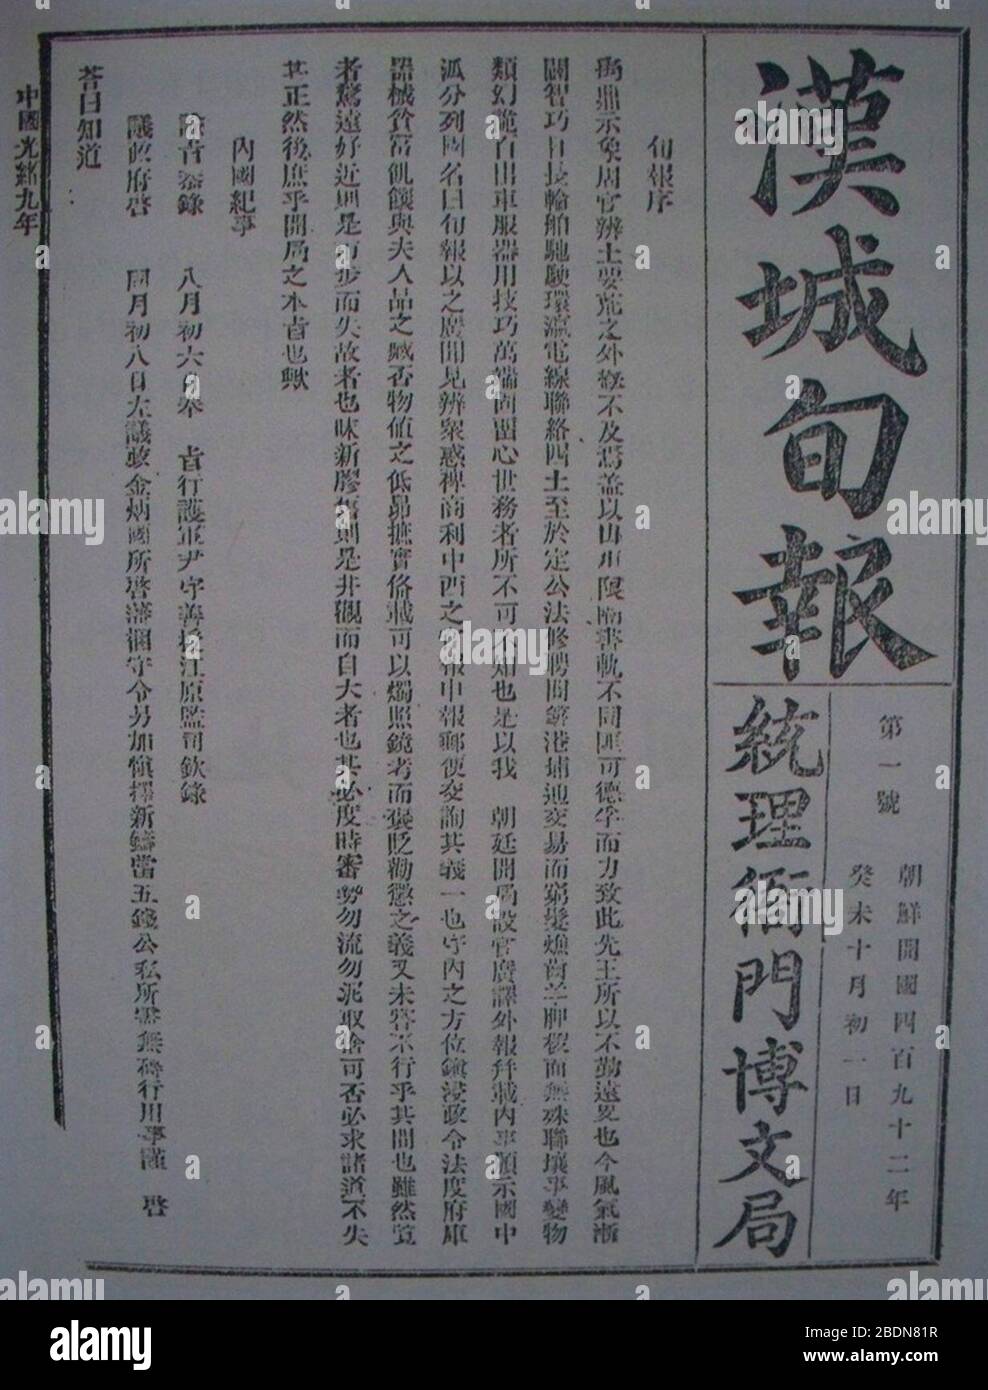 漢城旬報
統理衙門博文局
第一號
朝鮮開國四百九十二年
癸未十月初一日
旬報序
禹鼎示象周官辨土要荒之外蓋不及焉蓋以山川限隔書軌不同匪可德孚而力致此先王所以不勤遠略也今風氣漸
闢智巧日長輪舶馳駛環瀛電線聯絡四土至於定公法修聘問築港埔通交易而窮髮燋齒羊胛桜面無殊聯壤事變物
類幻詭百出車服器用技巧萬端固留心世務者所不可不知也是以我 朝廷開局設官廣譯外報幷載內事頒示國中
派分列國名曰旬報以之廣聞見辨衆惑裨商利中西之官報申報郵便交詢其義一也宇內之方位鎭浸政令法度府庫
器械貧富飢饟與夫人品之臧否物値之低昻摭實俻載可以燭照鏡考而褒貶勸懲之義又未嘗不行乎其間也雖然覽
者騖遠好近則是市步而失故者也昧新膠舊則是井觀而自大者也其必度時審勢勿流勿泥取捨可否必求諸道不失
其正然後庶乎開局之本旨也歟
內國紀事
八月初六日奉 旨行護軍尹守善授江原監司欽錄
議政府啓 同月初八日左議政金炳國所啓藩梱守令另加愼擇新鑄當五錢公私所需無碍行用事謹 啓
答曰知道
中國光緖九年
alamy
Image ID: 2BDN81R
www.alamy.com